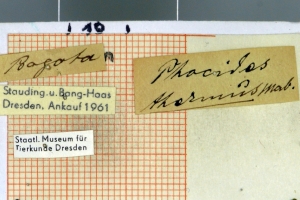 10
Bogota
Stauding.u.Bang-Haas
Dresden, Ankauf 1961
Staatl. Museum für
Tierkunde Dresden
Phocides
thermus Mab.